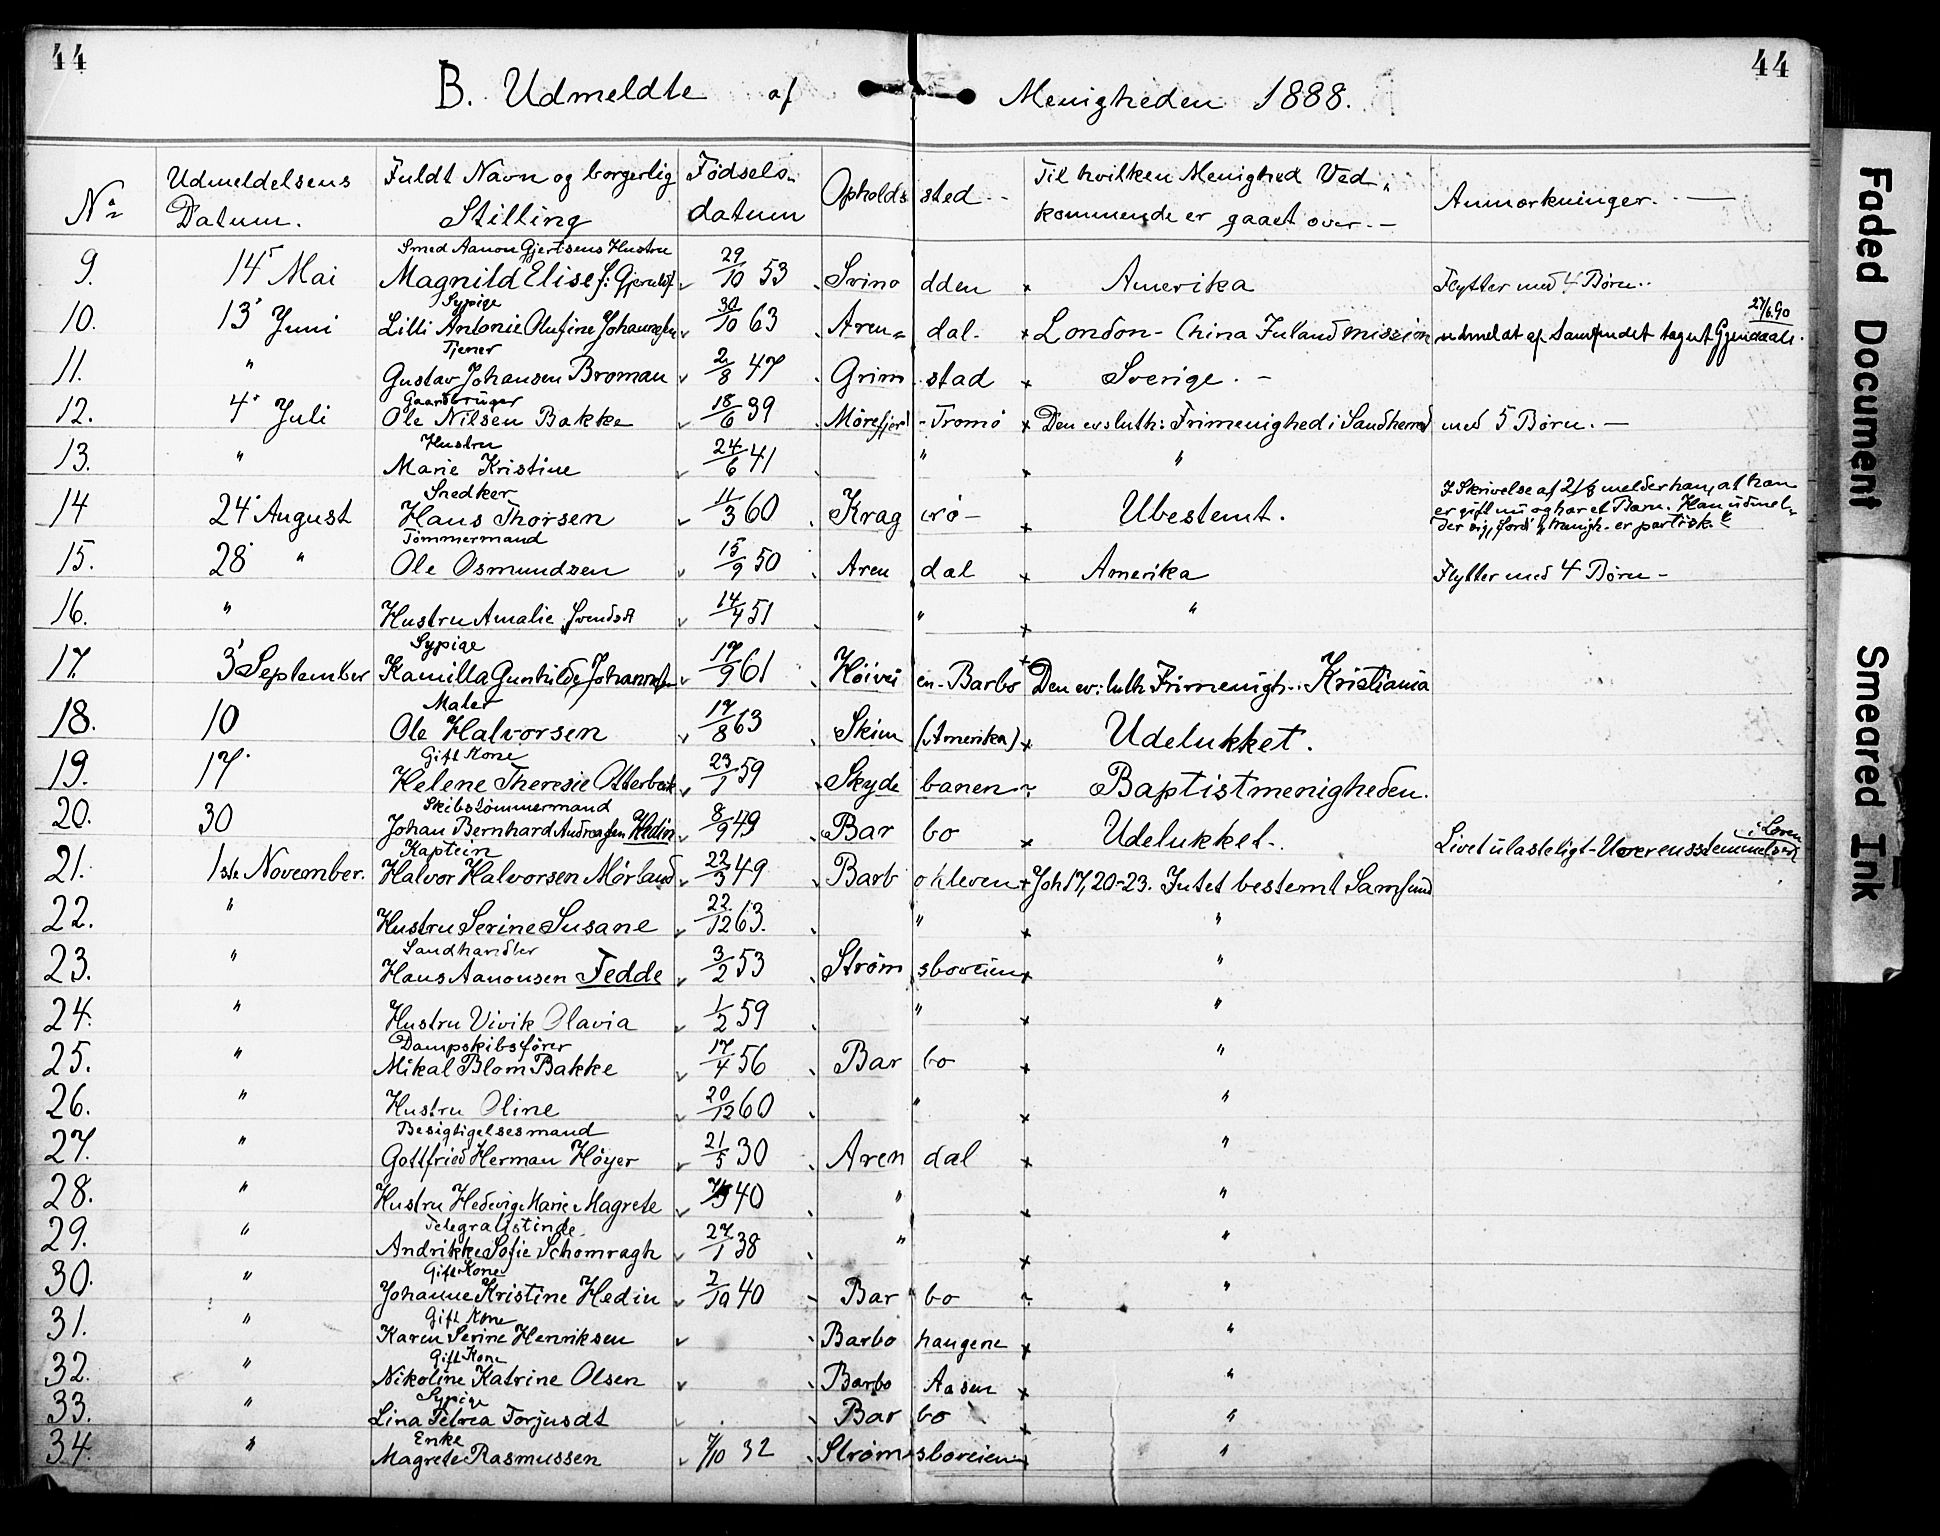 44 44
B. Udmeldte af Menigheden 1888.
No Udmeldelsens Datum. Fuldt Navn og borgerlig Stilling Fødsels-datum Opholdssted Til hvilken Menighed Ved-kommende er gaaet over. Anmærkninger.
Smed Aanon Gjertsens Hustru
9. 14' Mai Magnild Elise f. 29/10 53 dden Amerika Flytter med 4 Børn.
Sypige 27/6.90
10. 13' Juni Lilli Antonie Olufine Johannesen 30/10 63 Aren-dal. London - China Inland mission udmeldt af Samfundet
Tjener
11. " Gustav Johansen Broman 2/8 47 Grimstad Sverige. -
Gaardbruger
12. 4' Juli Ole Nilsen Bakke 18/6 39 Mørefjord - Tromø Den ev. luth: Frimenighed i Sandherred med 5 Børn. -
Hustru
13. " Marie Kristine 24/6 41 " "
Snedker I Skrivelse af 21/8 melder han, at han
14 24' August Hans Thorsen 11/3 60 Kragerø - Ubestemt. er gift nu og har et Barn. Han udmel-
der sig, fordi menigh. er partisk.
Tømmermand
15. 28' " Ole Osmundsen 15/9 50 Arendal Amerika Flytter med 4 Børn -
16. " Hustru Amalie 14/4 51 " "
Sypige
17. 3' September Kamilla Gunhilde Johannesen 17/9 61 en - Barbo Den ev: luth Frimenigh.. Kristiania
Maler
18. 10 Ole Halvorsen 17/8 63 Skien (Amerika) Udelukket.
Gift Kone
19. 17' Helene Theresie Otterbeck 23/1 59 Skydebanen Baptistmenigheden.
Skibstømmermand
20. 30 Johan Bernhard Andreassen Hedin 8/9 49 Barbo Udelukket. Livet ulasteligt - Uoverensstemmelser i Læren
Kaptein
21. 1ste November. Halvor Halvorsen Mørland 22/3 49 Barbokleven Joh 17, 20-23. Intet bestemt Samfund
22. " Hustru Serine Susane 22/12 63. " "
Sandhandler
23. " Hans Aanonsen Tedde 3/2 53 Strømsboveien "
24. " Hustru Vivik Olavia 1/2 59 " "
Dampskibsfører
25. " Mikal Blom Bakke 17/4 56 Barbo "
26. " Hustru Oline 20/12 60 " "
Besigtigelsesmand
27. " Gottfried Herman Höyer 21/5 30 Arendal "
28. " Hustru Hedevig Marie Magrete 40 " "
Telegrafistinde
29. " Andrikke Sofie Schomragh 27/1 38 " "
Gift Kone
30. " Johanne Kristine Hedin 2/10 40 Barbo "
Gift Kone
31. " Karen Serine Henriksen Barbo haugene "
Gift Kone
32. " Nikoline Katrine Olsen Barbo Aasen "
Sypige
33. " Lina Petrea Torjusdt Barbo "
Enke
34. " Magrete Rasmussen 7/10 32 Strømsboveien "
Faded Document
Smeared Ink